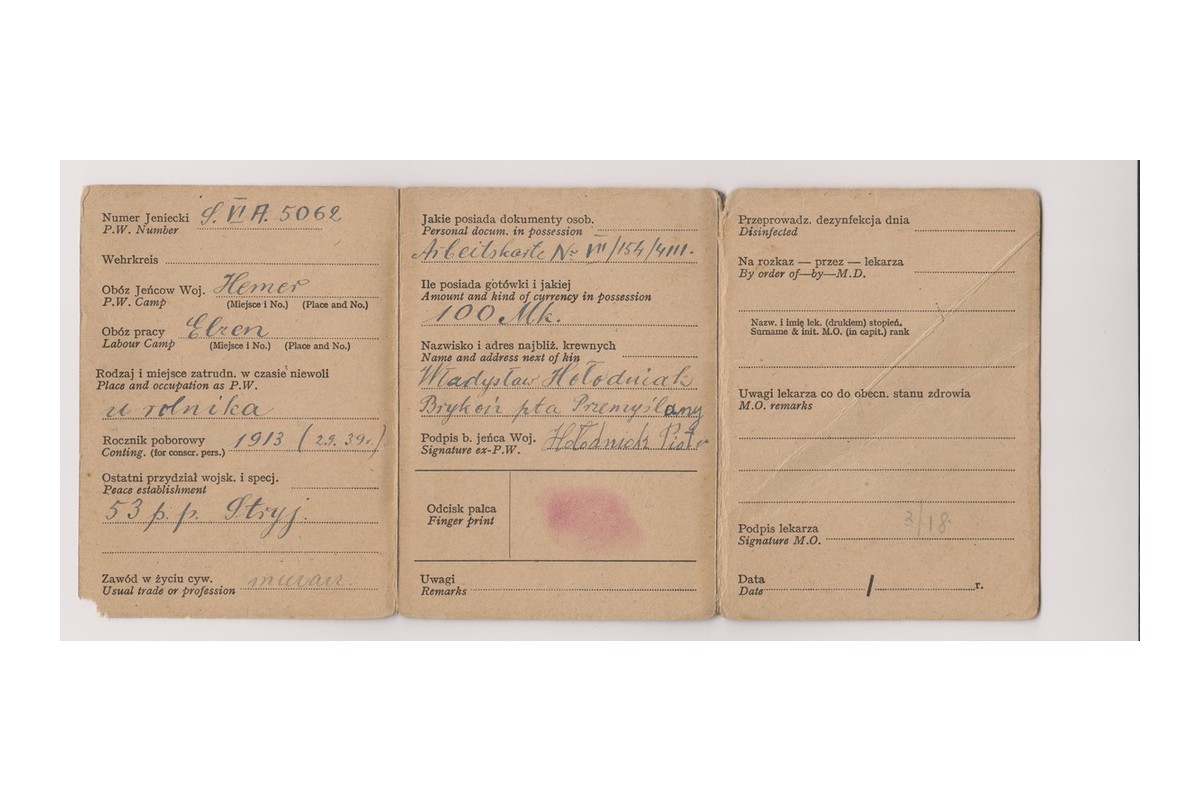 Numer Jeniecki S. VI A. 5062
P.W. Number
Wehrkreis
Obóz Jeńcow Woj. Hemer
P.W. Camp (Miejsce i No.) (Place and No.)
Obóz pracy Elzen
Labour Camp (Miejsce i No.) (Place and No.)
Rodzaj i miejsce zatrudn. w czasie niewoli
Place and occupation as P.W.
u rolnika
Rocznik poborowy 1913 (2.9. 39r.)
Conting. (for conscr. pers.)
Ostatni przydział wojsk. i specj.
Peace establishment
53 p. p. Stryj.
Zawód w życiu cyw. murarz.
Usual trade or profession
Jakie posiada dokumenty osob.
Personal docum. in possession
Arbeitskarte No VII/154/4111.
Ile posiada gotówki i jakiej
Amount and kind of currency in possession
100 Mk.
Nazwisko i adres najbliż. krewnych
Name and address next of kin
Władysław Hołodniak
Brykoń pta Przemyślany
Podpis b. jeńca Woj. Hołodniak Piotr
Signature ex-P.W.
Odcisk palca
Finger print
Uwagi
Remarks
Przeprowadz. dezynfekcja dnia
Disinfected
Na rozkaz — przez — lekarza
By order of—by—M.D.
Nazw. i imię lek. (drukiem) stopień.
Surname & init. M.O. (in capit.) rank
Uwagi lekarza co do obecn. stanu zdrowia
M.O. remarks
3/18
Podpis lekarza
Signature M.O.
Data / r.
Date